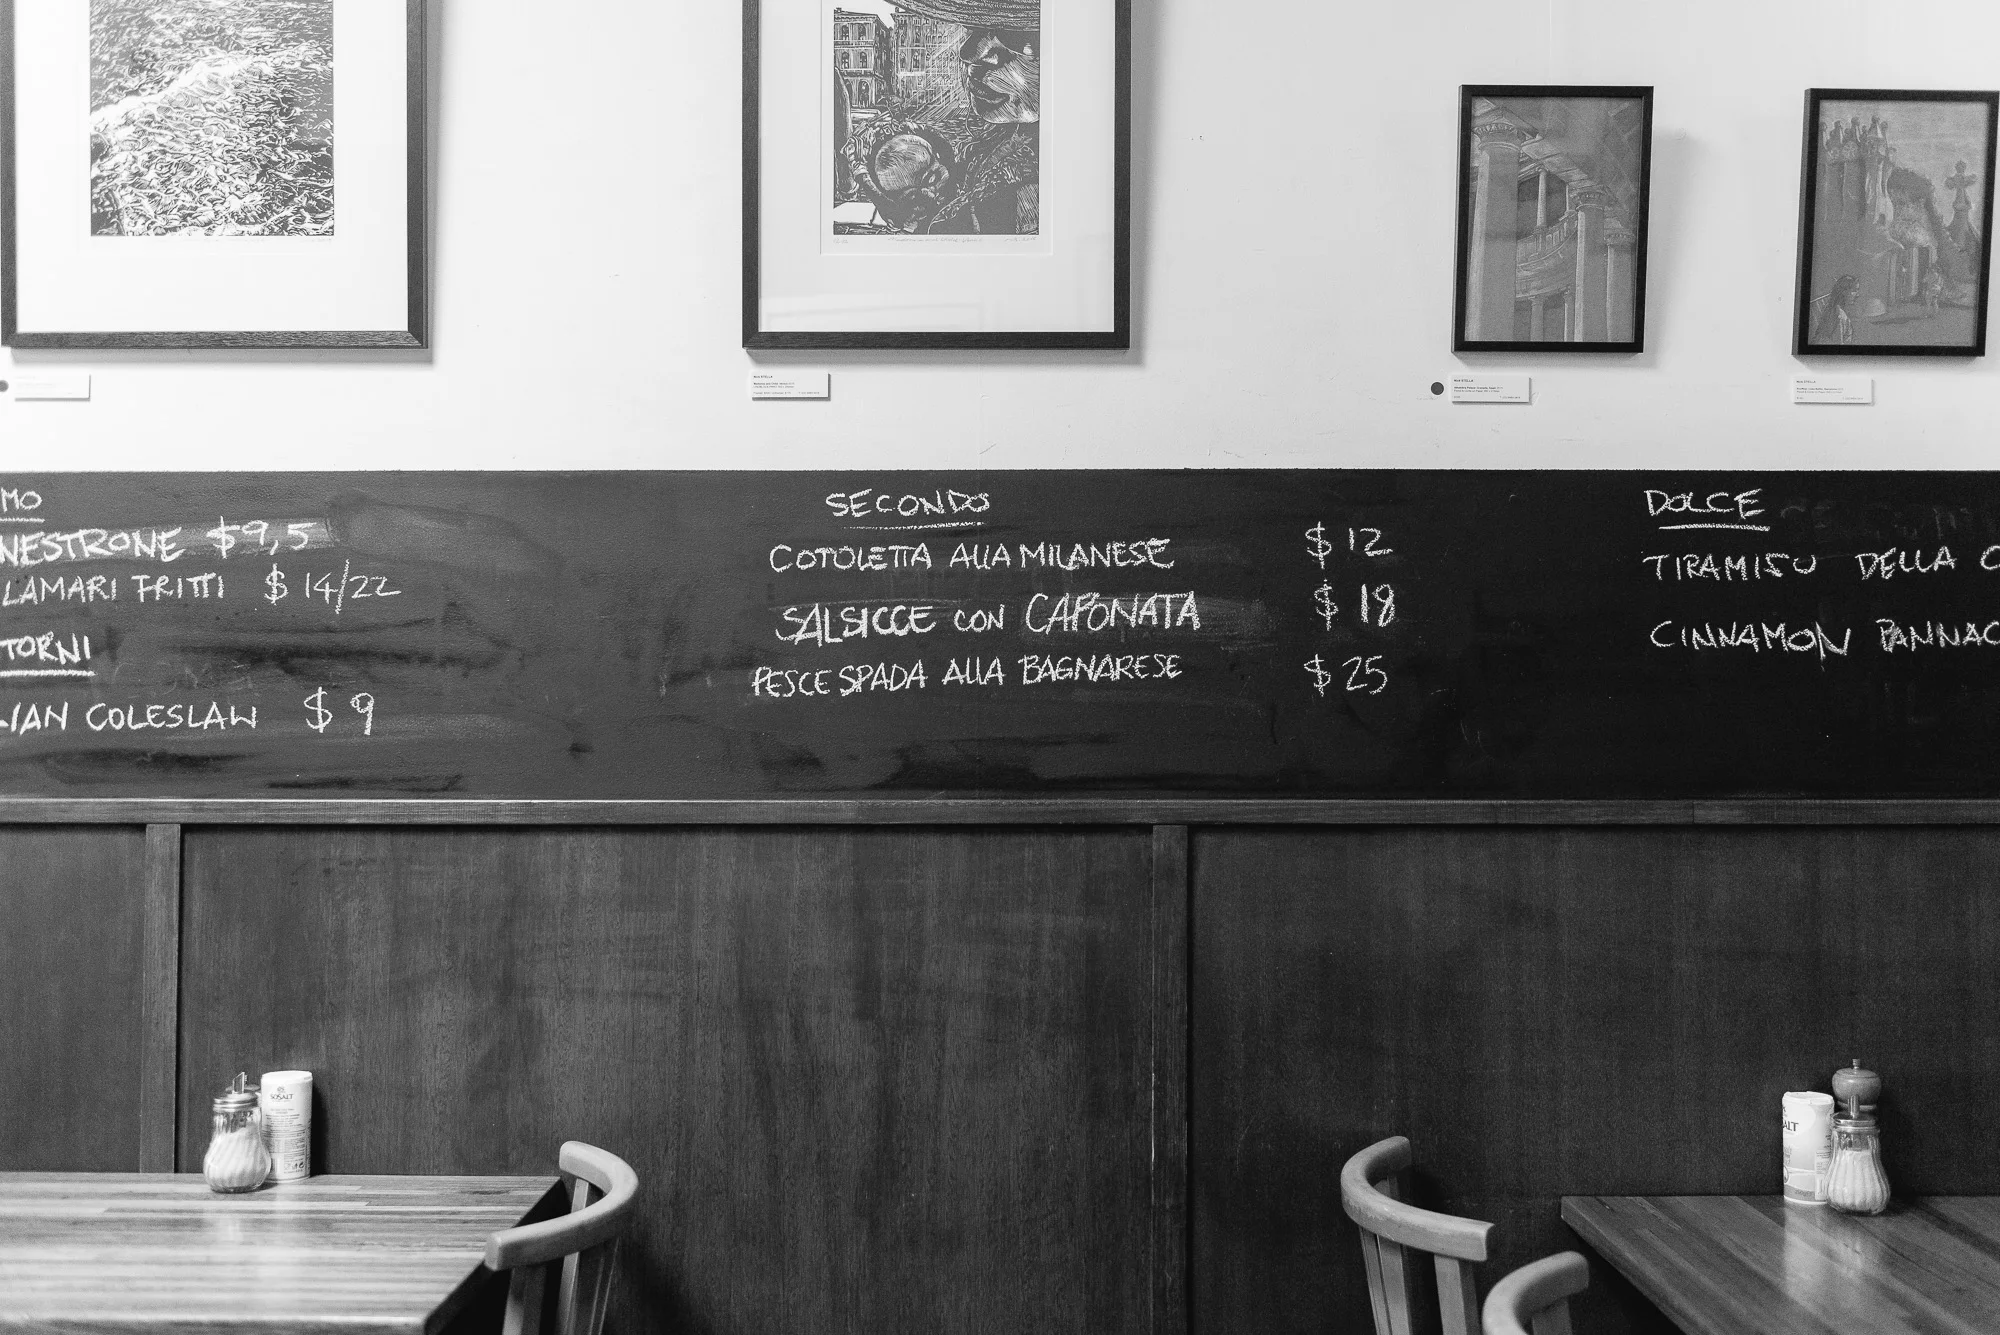 MO
NESTRONE $9,5
LAMARI FRITTI $14/22
TORNI
LIAN COLESLAW $9
SECONDO
COTOLETTA ALLA MILANESE $12
SALSICCE CON CAPONATA $18
PESCE SPADA ALLA BAGNARESE $25
DOLCE
TIRAMISU DELLA C
CINNAMON PANNAC
NIA STELLA
NIA STELLA
NIA STELLA
SOSALT
ALT